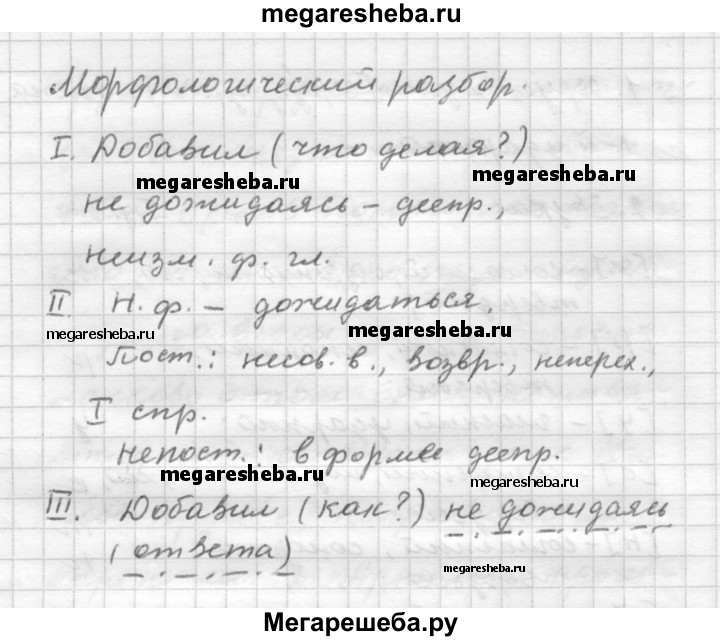 megaresheba.ru
Морфологический разбор.
I. Добавил (что делая?)
megaresheba.ru
megaresheba.ru
не дожидаясь – деепр.,
неизм. ф. гл.
II Н. ф. – дожидаться.
megaresheba.ru
megaresheba.ru
Пост.: несов. в., возвр., неперех.,
megaresheba.ru
I спр.
непост.: в форме деепр.
megaresheba.ru
megaresheba.ru
III. Добавил (как?) не дожидаясь
(ответа)
megaresheba.ru
Мегарешеба.ру